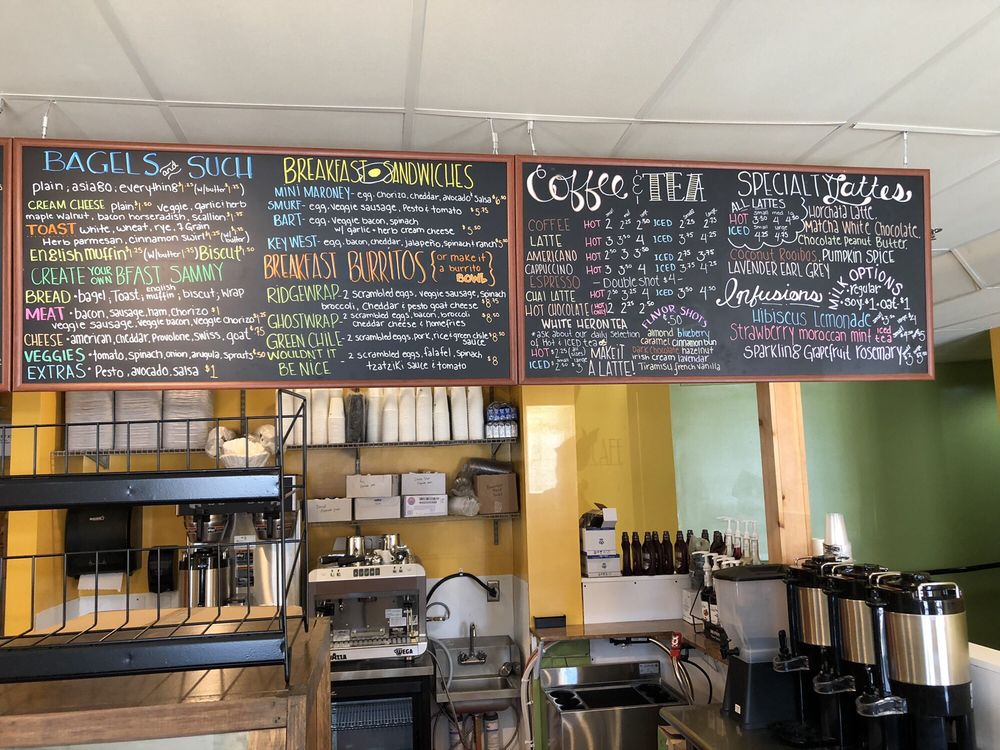 BAGELS and SUCH
plain, asiago, everything $1.25 (w/butter $1.75)
CREAM CHEESE plain $1.50 veggie, garlic+herb
maple walnut, bacon horseradish, scallion
TOAST white, wheat, rye, 7 Grain
Herb parmesan, cinnamon swirl (w/butter)
English muffin Biscuit
CREATE YOUR OWN BFAST SAMMY
BREAD • bagel, Toast, english muffin, biscuit, wrap
MEAT • bacon, sausage, ham, chorizo $1
veggie sausage, veggie bacon, veggie chorizo
CHEESE • american, cheddar, provolone, swiss, goat $.75
VEGGIES • tomato, spinach, onion, arugula, sprouts $.50
EXTRAS • Pesto, avocado, salsa $1
BREAKFAST SANDWICHES
MINI MARONEY - egg, chorizo, cheddar, avocado + salsa
SMURF - egg, veggie sausage, Pesto & tomato $5.75
BART - egg, veggie bacon, spinach
w/ garlic + herb cream cheese $5.50
KEY WEST - egg, bacon, cheddar, jalapeño, spinach + ranch
BREAKFAST BURRITOS {or make it a burrito BOWL}
RIDGEWRAP - 2 scrambled eggs, veggie sausage, spinach
broccoli, cheddar & pesto goat cheese
GHOSTWRAP - 2 scrambled eggs, bacon, broccoli
cheddar cheese & homefries
GREEN CHILE - 2 scrambled eggs, pork, rice & green chile sauce
WOULDN'T IT BE NICE 2 scrambled eggs, falafel, spinach,
tzatziki sauce & tomato $8
Coffee & TEA
COFFEE HOT 2 2.25 2.50 ICED
LATTE HOT 3 3.50 4 ICED 3 3.75 4.25
AMERICANO HOT ICED
CAPPUCCINO HOT 3 3.50 4 ICED
ESPRESSO - Double shot $4 -
CHAI LATTE HOT ICED 3 3.50 4
HOT CHOCOLATE HOT
WHITE HERON TEA
*ask about our daily selection
of Hot & ICED teas
HOT
ICED
MAKE IT A LATTE!
FLAVOR SHOTS $.50
almond blueberry
caramel cinnamon bun
dark chocolate hazelnut
irish cream lavender
Tiramisu french vanilla
SPECIALTY Lattes
ALL LATTES
small med lg
HOT
small med lg
ICED
Horchata Latte
Matcha White Chocolate
Chocolate Peanut Butter
Coconut Rooibos, PUMPKIN SPICE
LAVENDER EARL GREY
MILK OPTIONS
• regular
• soy $1 • oat $1
Infusions
Hibiscus Lemonade
Strawberry moroccan mint iced tea
sparkling Grapefruit rosemary
WEGA